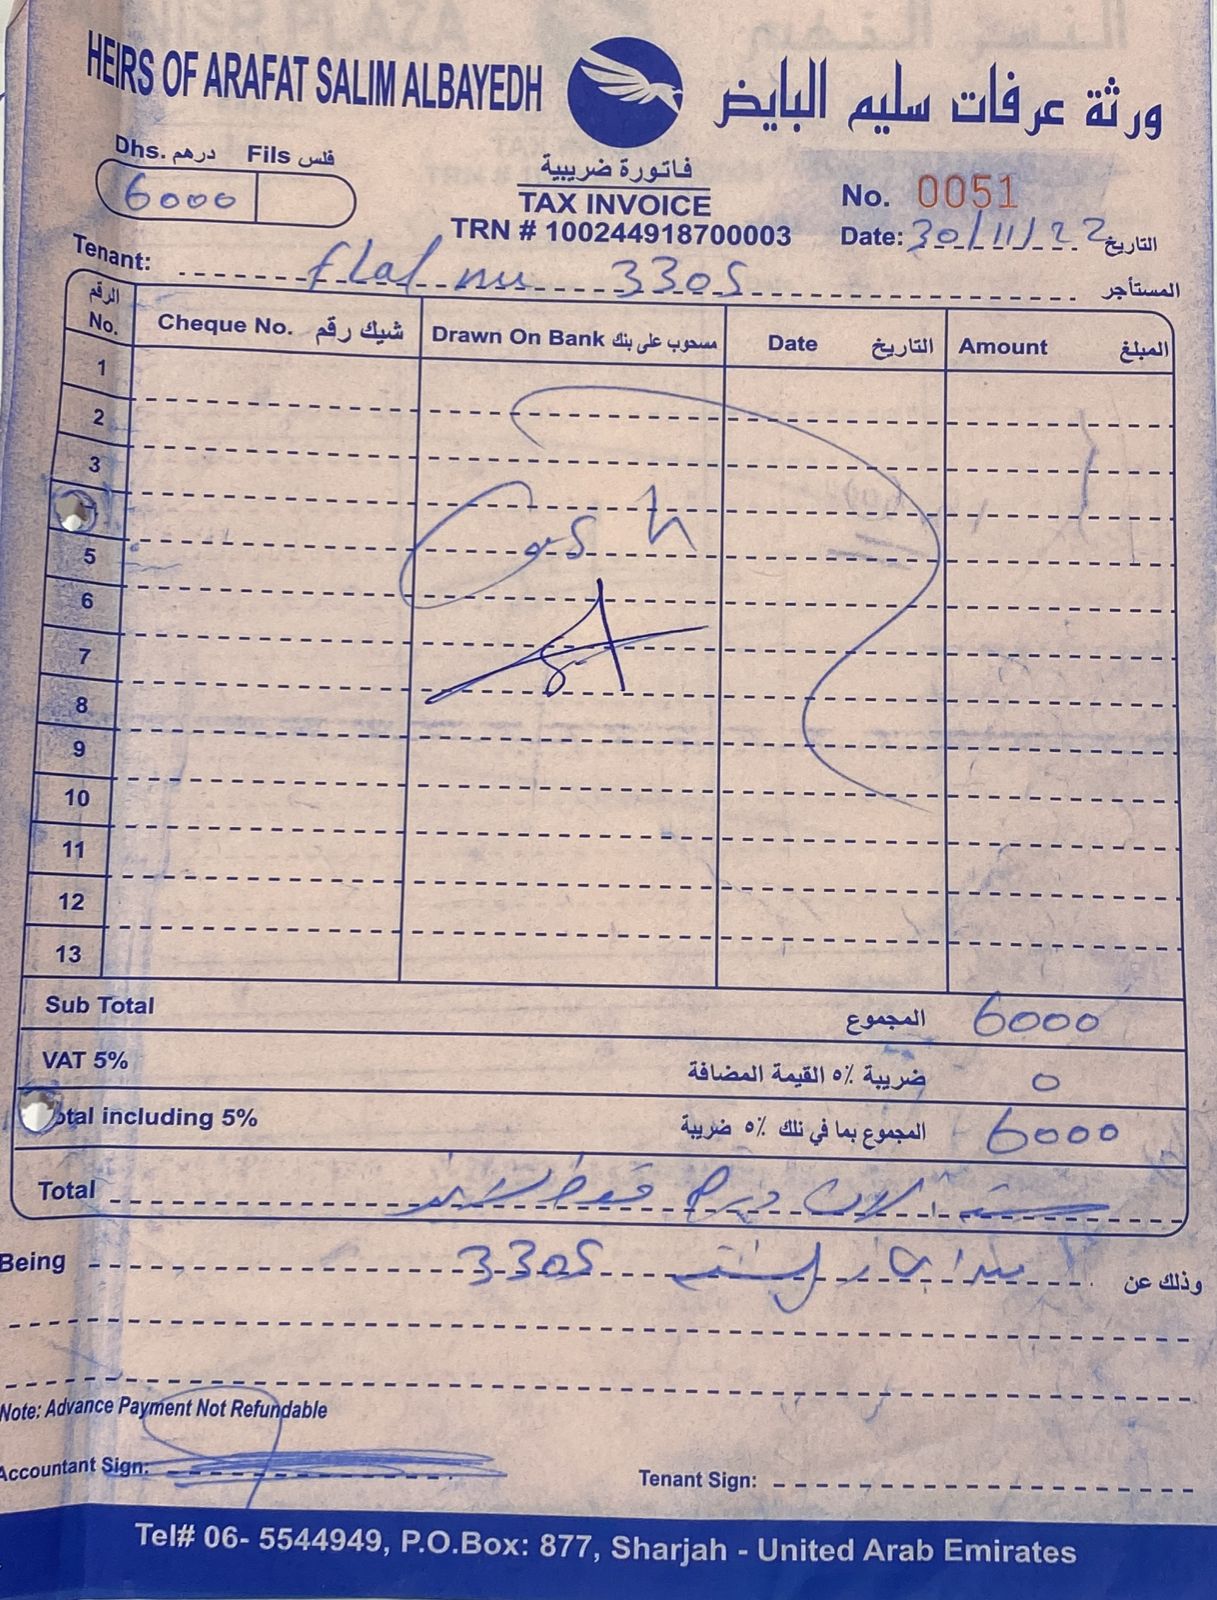 HEIRS OF ARAFAT SALIM ALBAYEDH
ورثة عرفات سليم البايض
Dhs. درهم Fils فلس
6000
فاتورة ضريبية
TAX INVOICE
TRN # 100244918700003
No. 0051
Date: 30/11/22 التاريخ
Tenant: flat no 3305 المستأجر
الرقم No. Cheque No. شيك رقم Drawn On Bank مسحوب على بنك Date التاريخ Amount المبلغ
1
2
3
5
Cash
6
7
8
9
10
11
12
13
Sub Total المجموع 6000
VAT 5% ضريبة ٥٪ القيمة المضافة 0
otal including 5% المجموع بما في ذلك ٥٪ ضريبة 6000
Total ستة آلاف درهم فقط
Being 3305 وذلك عن
Note: Advance Payment Not Refundable
Accountant Sign:
Tenant Sign:
Tel# 06- 5544949, P.O.Box: 877, Sharjah - United Arab Emirates